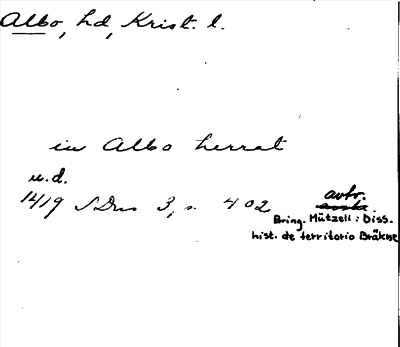 Albo, hd, Krist. l.
in Albo herret
u.d.
1419 SDns 3, s. 402
avtr.
Bring. Mützell: Diss.
hist. de territorio Bräkne